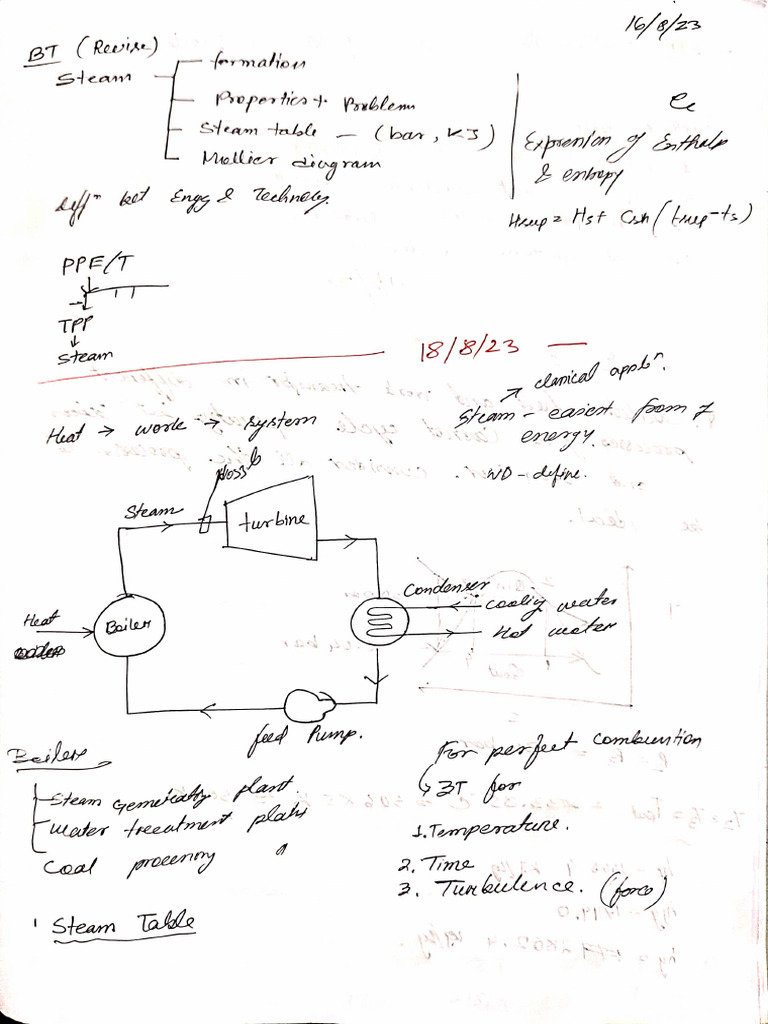 16/8/23
BT (Revise)
Steam
formation
Properties + Problem
Steam table - (bar, KJ)
Mollier diagram
Expression of Enthalp
& entropy
Hsup = Hs + Csh (tsup-ts)
diffn bet Engg & Technology.
PPE/T
TPP
Steam
18/8/23
clanical appln.
Heat → work → system
Steam - easiest from of
energy.
WD - define.
Steam
turbine
Boiler
Heat
Condenser
Cooling water
Hot water
feed Pump.
Boilers
Steam generating plant
water treatment plant
Coal processing
For perfect combustion
3T for
1. Temperature.
2. Time
3. Turbulence. (force)
Steam Table